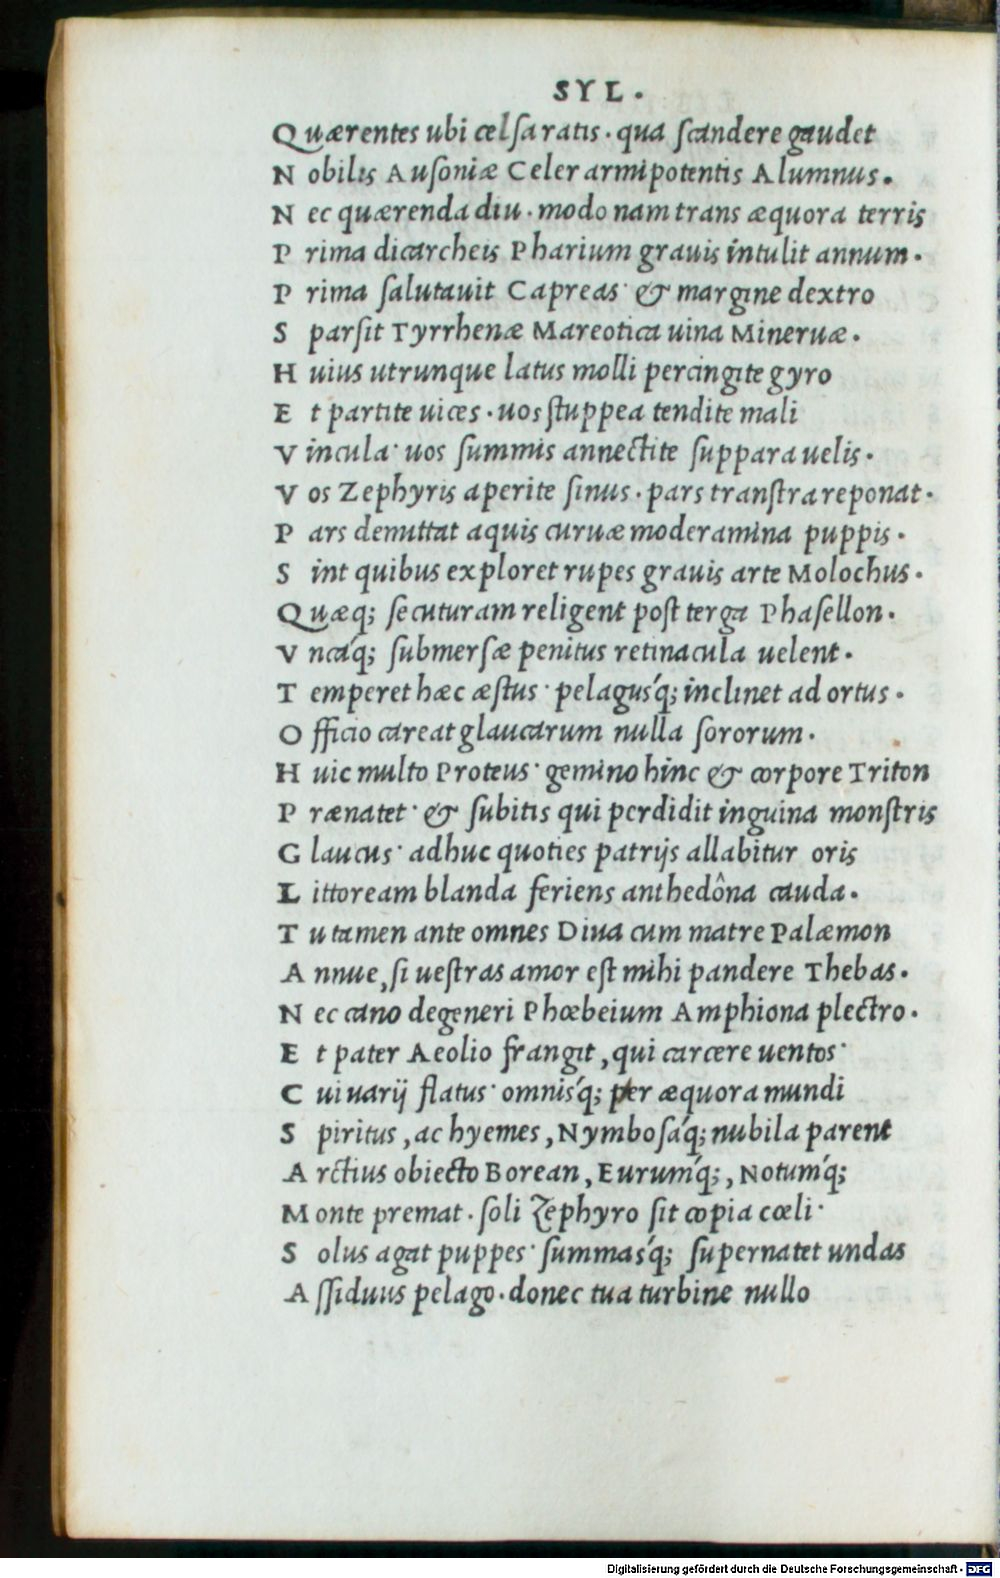 SYL.
Quærentes ubi celſa ratis· qua ſcandere gaudet
Nobilis Auſoniæ Celer armipotentis Alumnus.
Nec quærenda diu· modo nam trans æquora terris
Prima dicarcheis Pharium grauis intulit annum.
Prima ſalutauit Capreas· & margine dextro
Sparſit Tyrrhenæ Mareotica uina Mineruæ.
Huius utrunque latus molli percingite gyro
Et partite uices· uos ſtuppea tendite mali
Vincula· uos ſummis annectite ſuppara uelis.
Vos Zephyris aperite ſinus· pars tranſtra reponat.
Pars demittat aquis curuæ moderamina puppis.
Sint quibus exploret rupes grauis arte Molochus.
Quæq; ſecuturam religent poſt terga Phaſellon.
Vncáq; ſubmerſæ penitus retinacula uelent.
Temperet hæc æſtus· pelagusq́; inclinet ad ortus.
Officio careat glaucarum nulla ſororum.
Huic multo Proteus· gemino hinc & corpore Triton
Prænatet· & ſubitis qui perdidit inguina monſtris
Glaucus· adhuc quoties patrijs allabitur oris
Littoream blanda feriens anthedôna cauda.
Tu tamen ante omnes Diua cum matre Palæmon
Annue, ſi ueſtras amor eſt mihi pandere Thebas.
Nec cano degeneri Phœbeium Amphiona plectro.
Et pater Aeolio frangit, qui carcere uentos·
Cui uarij flatus· omnisq́; per æquora mundi
Spiritus, ac hyemes, Nymboſáq; nubila parent
Arctius obiecto Borean, Eurumq́;, Notumq́;
Monte premat· ſoli Zephyro ſit copia cœli·
Solus agat puppes· ſummasq́; ſupernatet undas
Aſſiduus pelago· donec tua turbine nullo
Digitalisierung gefördert durch die Deutsche Forschungsgemeinschaft - DFG